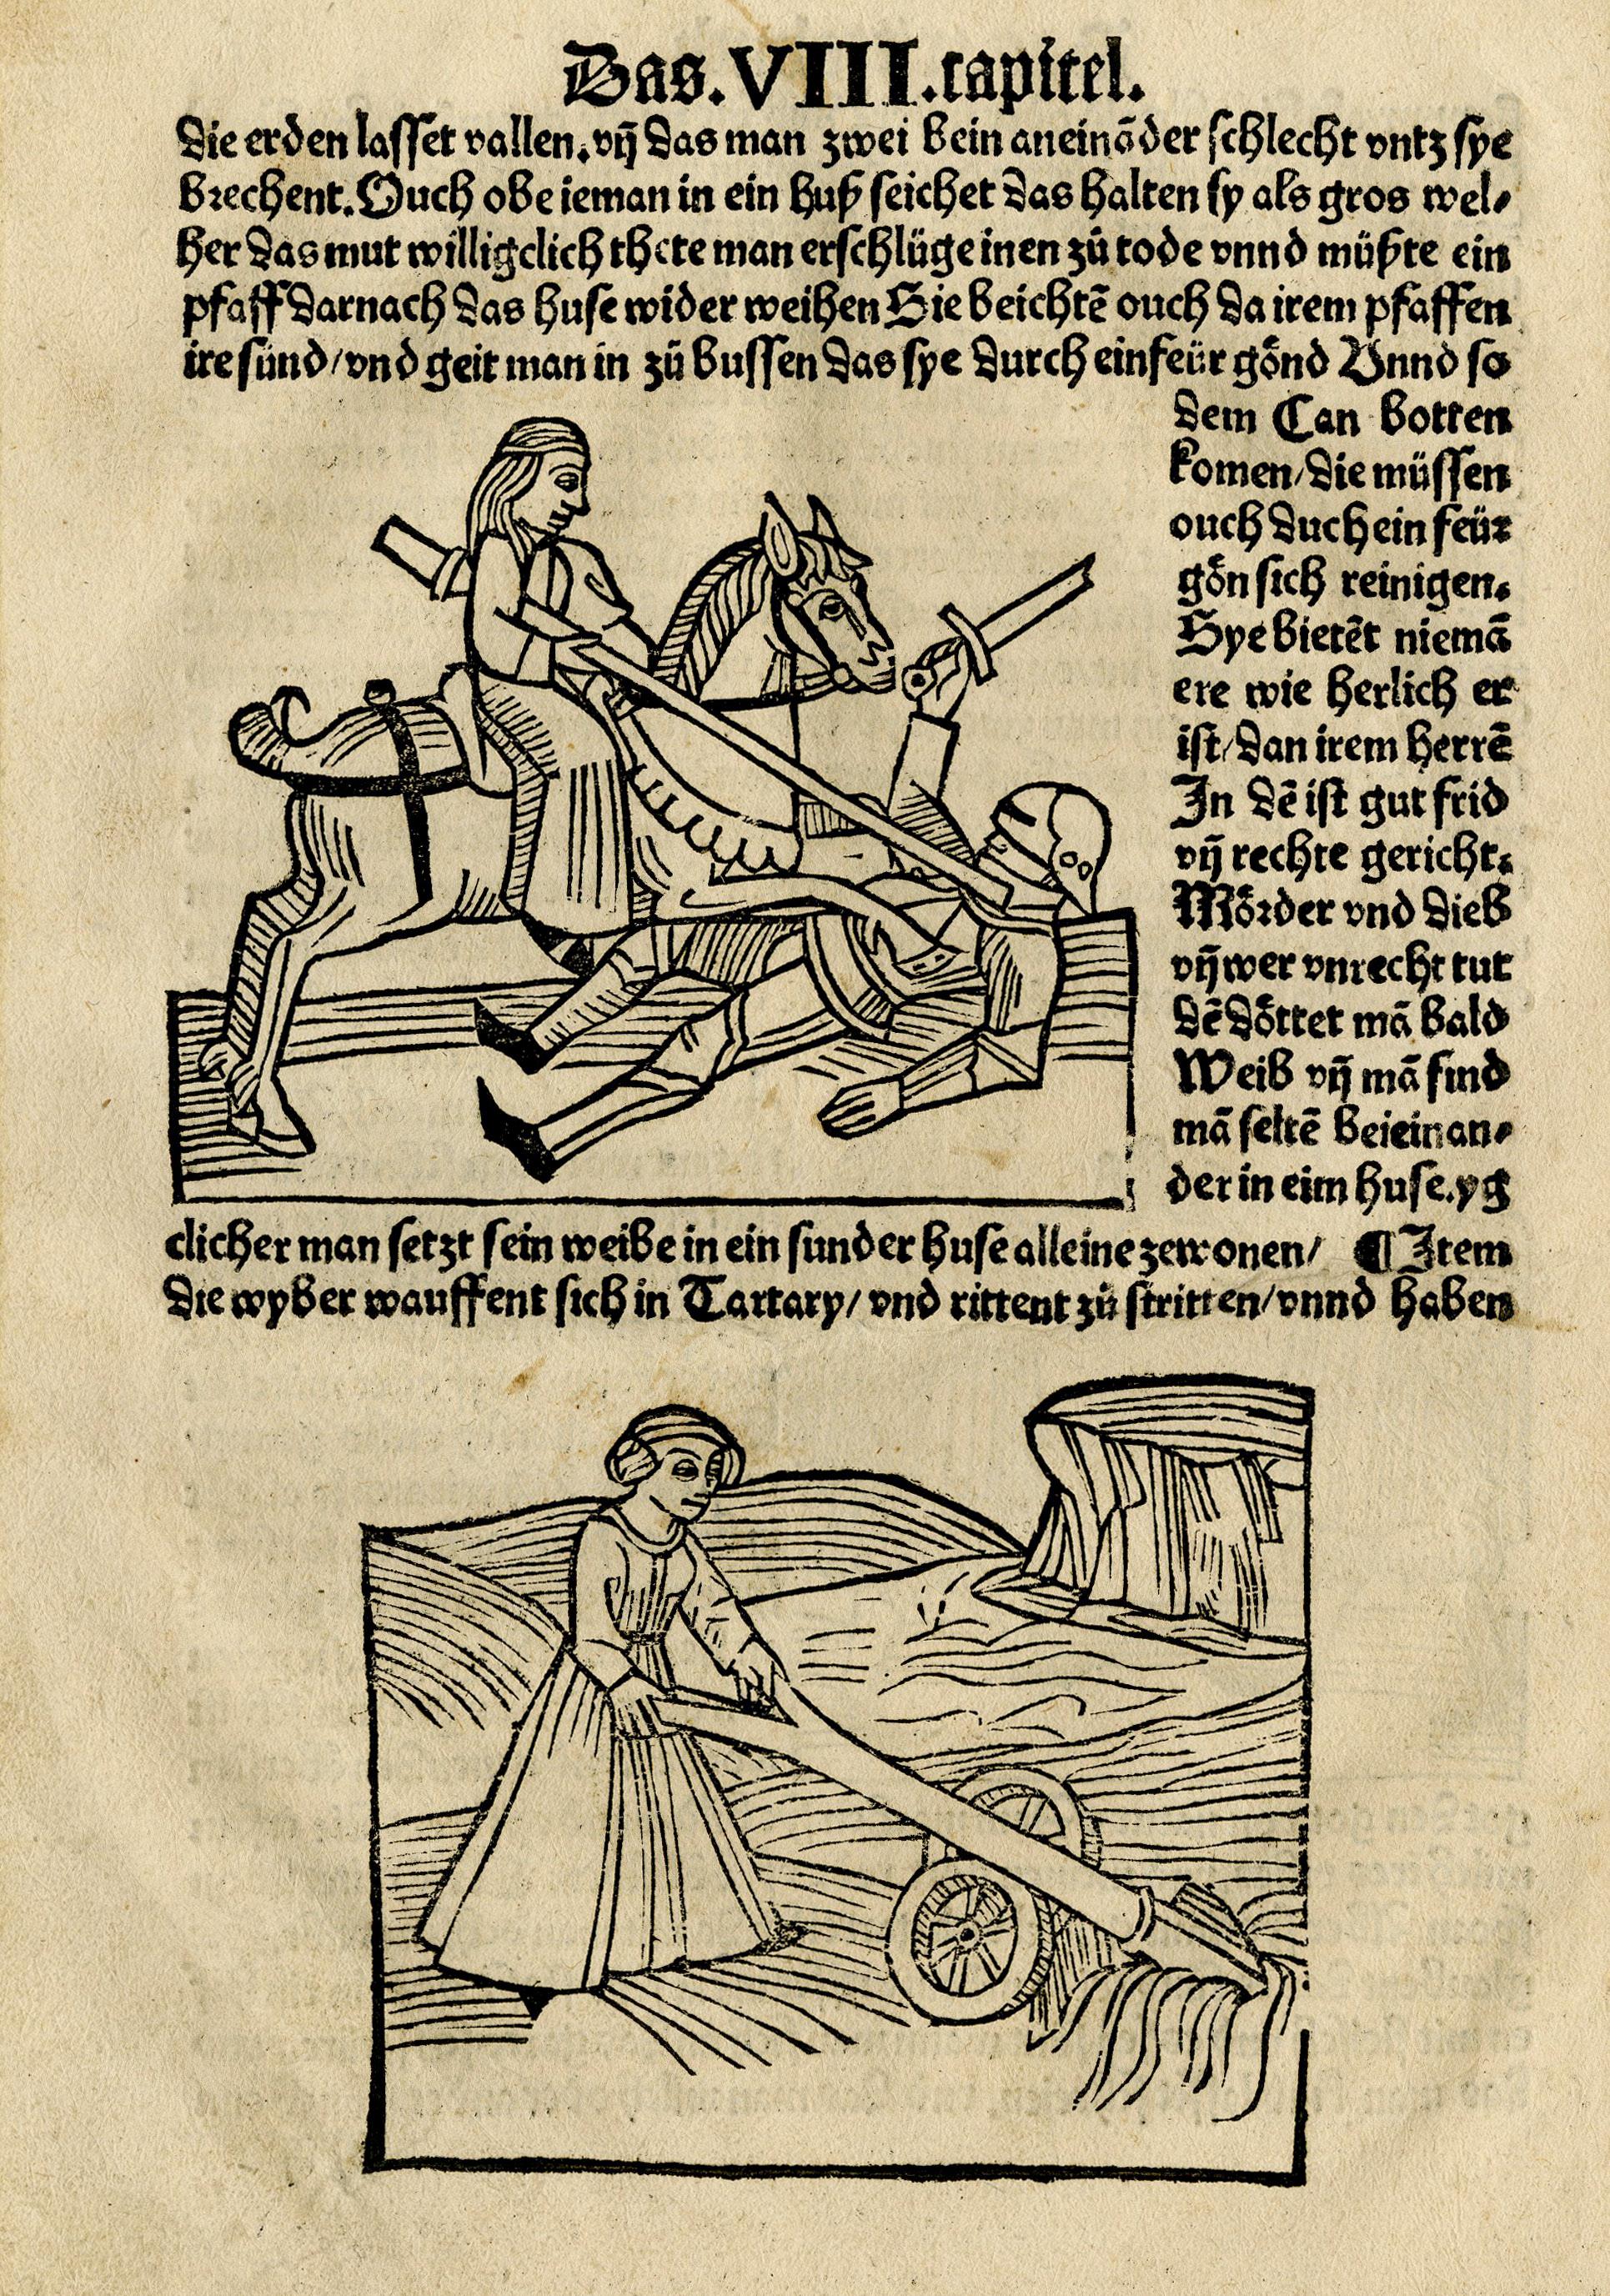 Das.VIII.capitel.
die erden lasset vallen.vñ das man zwei bein aneināder schlecht vntz sye
brechent.Ouch obe ieman in ein huß seichet das halten sy als gros wel⸗
her das mut willigclich thete man erschlüge inen zů tode vnnd müßte ein
pfaff darnach das huse wider weihen Sie beichtē ouch da irem pfaffen
ire sünd/vnd geit man in zů bussen das sye durch ein feür gônd Vnnd so
dem Can botten
komen/die müssen
ouch duch ein feür
gôn sich reinigen.
Sye bietēt niemā
ere wie herlich er
ist/dan irem herrē
In dē ist gut frid
vñ rechte gericht.
Môrder vnd dieb
vñ wer vnrecht tut
dē dôttet mā bald
Weib vñ mā find
mā seltē beieinan⸗
der in eim huse.yg
clicher man setzt sein weibe in ein sunder huse alleine zewonen/ ¶ Item
die wyber wauffent sich in Tartary/ vnd rittent zů stritten/vnnd haben